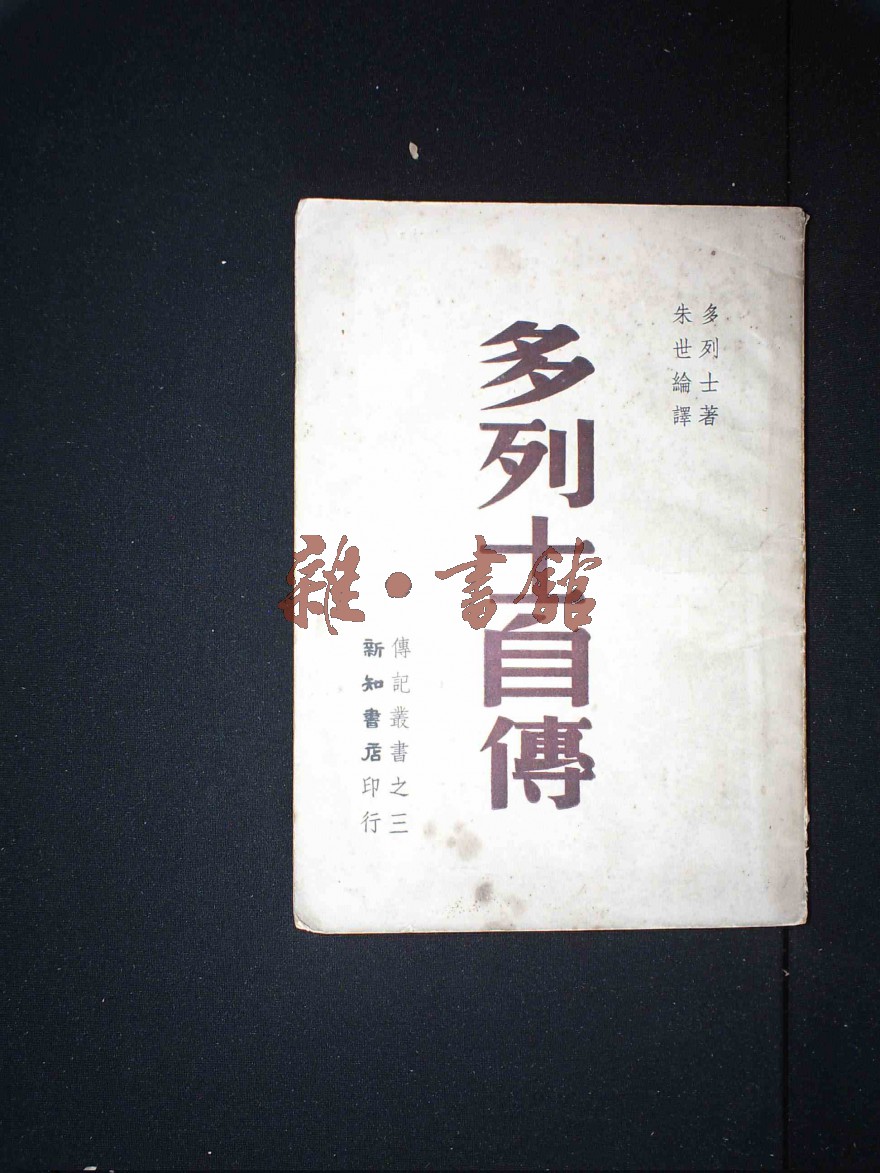 多列士著
朱世綸譯
多列士自傳
傳記叢書之三
新知書店印行
雜·書館